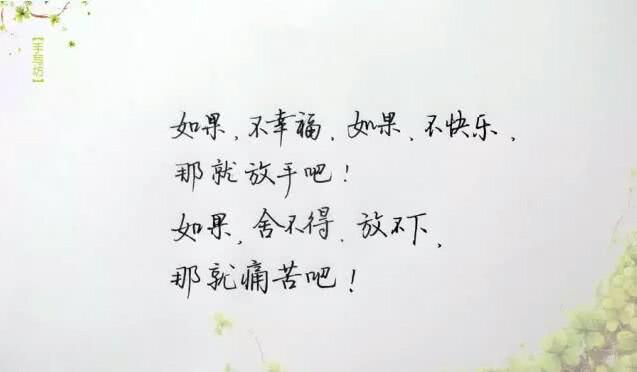 【手写坊】
如果、不幸福、如果、不快乐、
那就放手吧！
如果、舍不得、放不下、
那就痛苦吧！